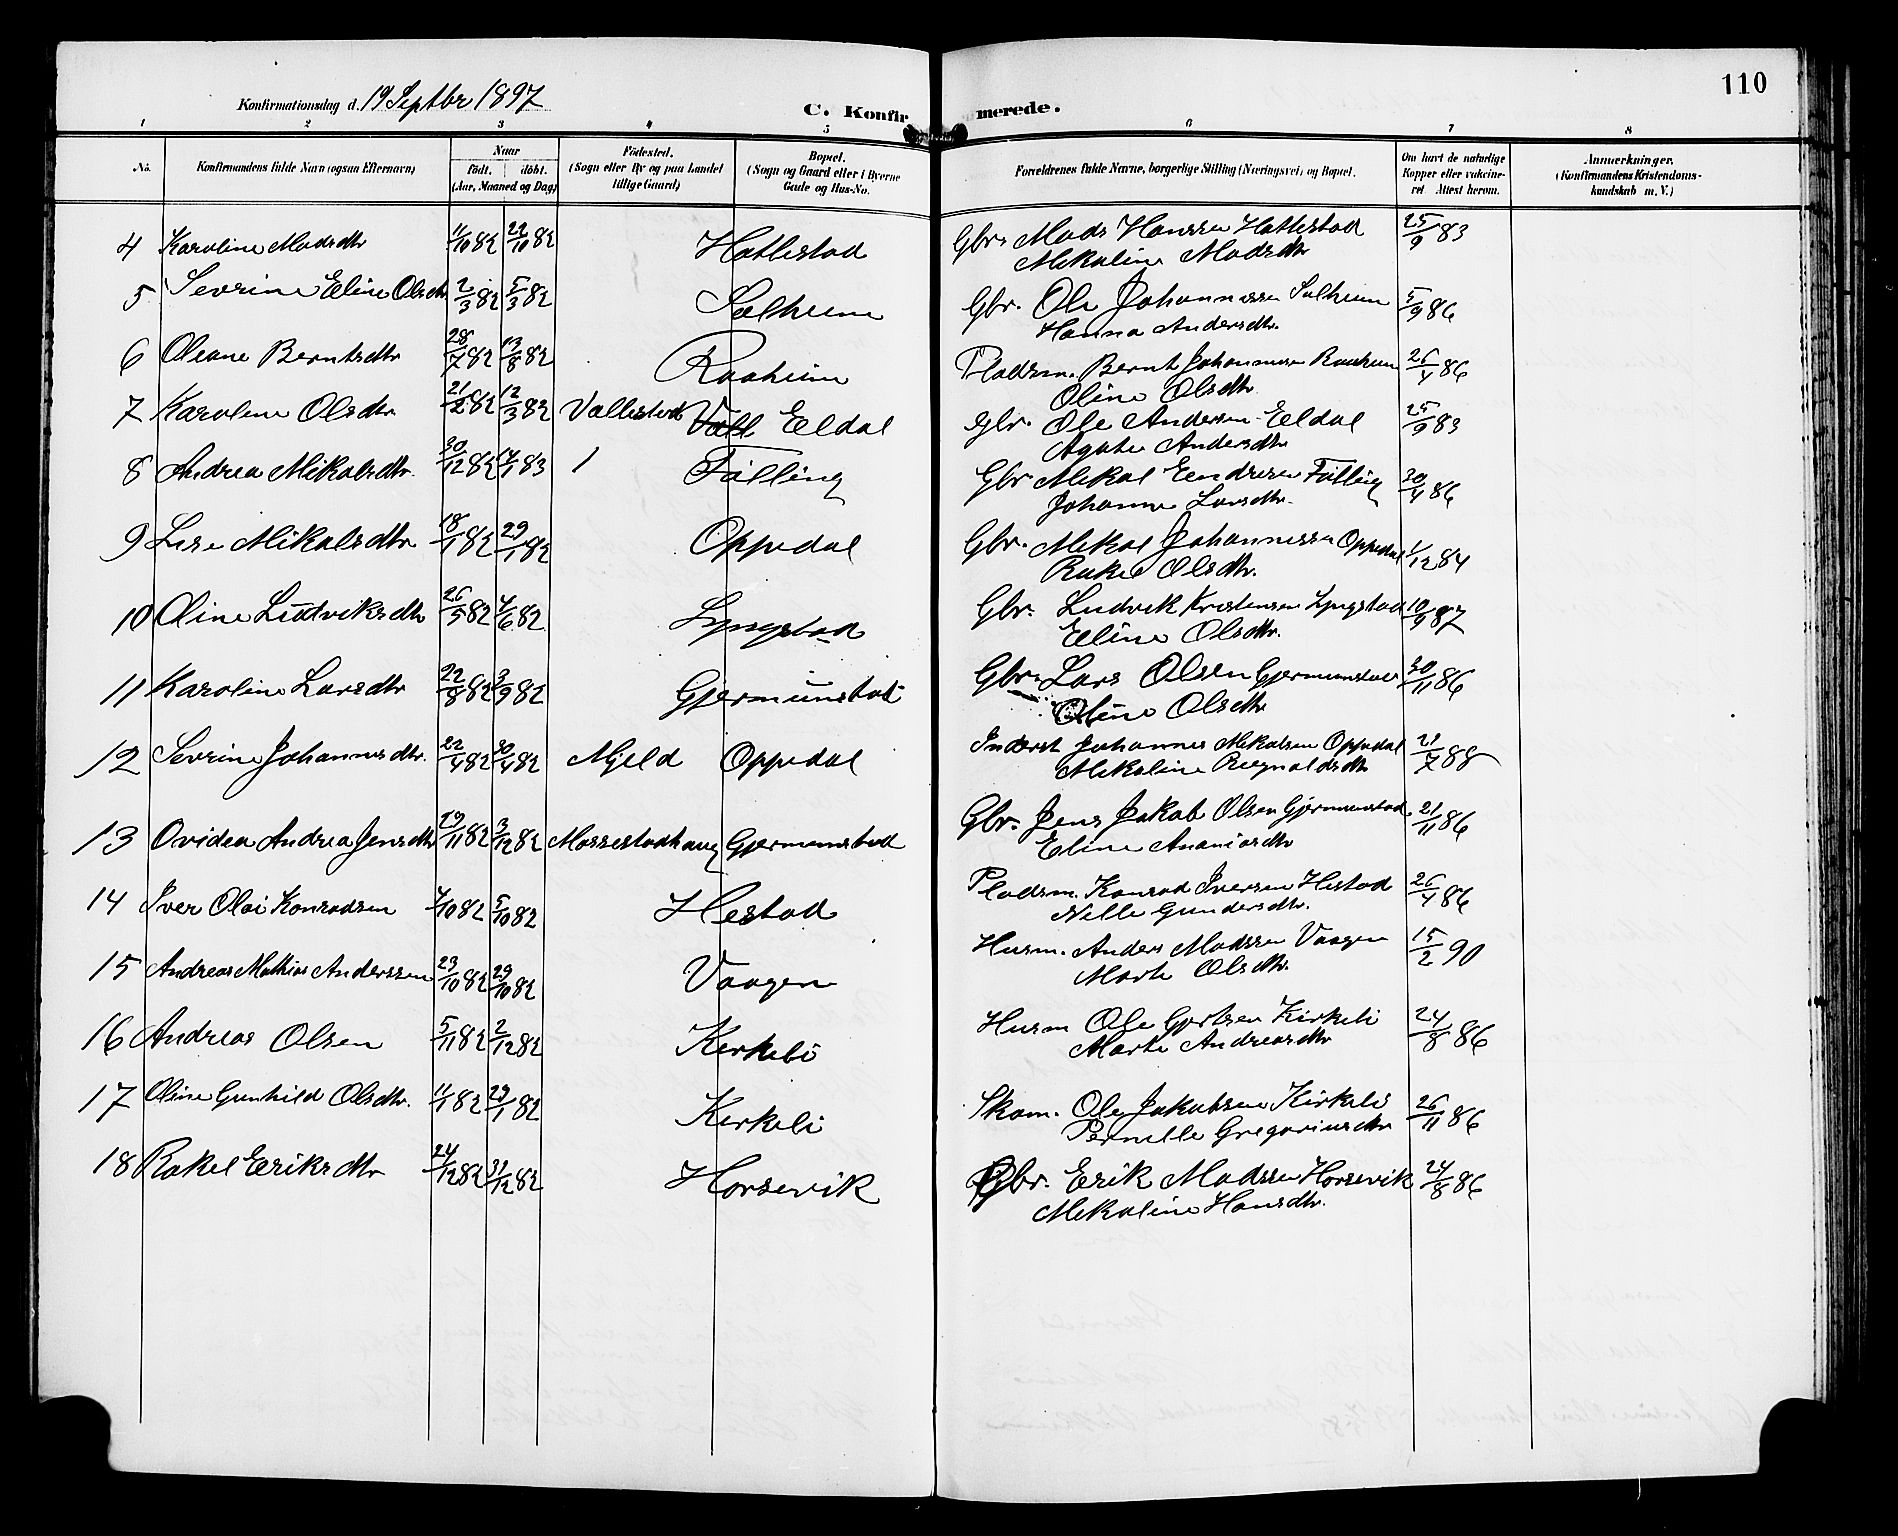 110
Konfirmationsdag d. 19 Septbr 1897
C. Konfirmerede.
1 2 3 4 5 6 7 8
No. Konfirmandens fulde Navn (ogsaa Efternavn) Naar Födt. döbt. (Aar, Maaned og Dag) Födested. (Sogn eller By og paa Landet tillige Gaard) Bopæl. (Sogn og Gaard eller i Byerne Gade og Hus-No. Forældrenes fulde Navne, borgerlige Stilling (Næringsvei) og Bopæl. Om havt de naturlige Kopper eller vakcineret Attest herom. Anmerkninger. (Konfirmandens Kristendomskundskab m. V.)
4 Karoline Madsdtr 11/10 82 22/10 82 Hatlestad Gbr. Mads Hansen Hatlestad 25/9 83
Mikaline Madsdtr
5 Sevrine Eline Olsdtr 2/3 82 5/3 82 Solheim Gbr. Ole Johannessen Solheim 5/9 86
Hanna Andersdtr.
6 Oleane Berntsdtr 28/7 82 13/8 82 Raaheim Pladsm. Bernt Johannessen Raaheim 26/4 86
Oline Olsdtr
7 Karoline Olsdtr 21/2 82 12/3 82 Vallestad Vall Eldal Gbr. Ole Andersen Eldal 25/9 83
Agate Andersdtr
8 Andrea Mikalsdtr. 30/12 82 14/1 83 1 Fölling Gbr Mikal Eendresen Fölling 30/4 86
Johanne Larsdtr.
9 Lise Mikalsdtr 18/1 82 29/1 82 Oppedal Gbr. Mikal Johannessen Oppedal 1/12 84
Rakel Olsdtr.
10 Oline Ludviksdtr 26/5 82 4/6 82 Lyngstad Gbr. Ludvik Kristensen Lyngstad 10/9 87
Eline Olsdtr.
11 Karoline Larsdtr 22/8 82 3/9 82 Gjermunstad Gbr. Lars Olsen Gjermunstad 30/11 86
Oline Olsdtr
12 Sevrine Johannesdtr. 22/4 82 30/4 82 Mjeld Oppedal Inderst Johannes Mikalsen Oppedal 21/7 88
Mikaline Regnaldsdtr
13 Ovidea Andrea Jensdtr 19/11 82 3/12 82 Massestadhaug Gjermunstad Gbr. Jens Jakob Olsen Gjermunstad 21/11 86
Eline Ananiasdtr
14 Iver Olai Konradsen 4/10 82 5/10 82 Hestad Pladsm. Konrad Iversen Hestad 26/4 86
Nille Gundersdtr.
15 Andreas Mathias Anderssen 23/10 82 29/10 82 Vaagen Husm. Anders Madssen Vaagen 15/2 90
Marte Olsdtr.
16 Andreas Olsen 5/11 82 2/12 82 Kirkeli Husm Ole Gjertsen Kirkeli 24/8 86
Marte Andreasdtr
17 Oline Gunhild Olsdtr. 11/1 82 29/1 82 Kirkeli Skom. Ole Jakobsen Kirkeli 26/11 86
Pernille Gregoriusdtr
18 Rakel Eriksdtr 24/12 82 31/12 82 Horsevik Gbr. Erik Madssen Horsevik 24/8 86
Mikaline Hansdtr.